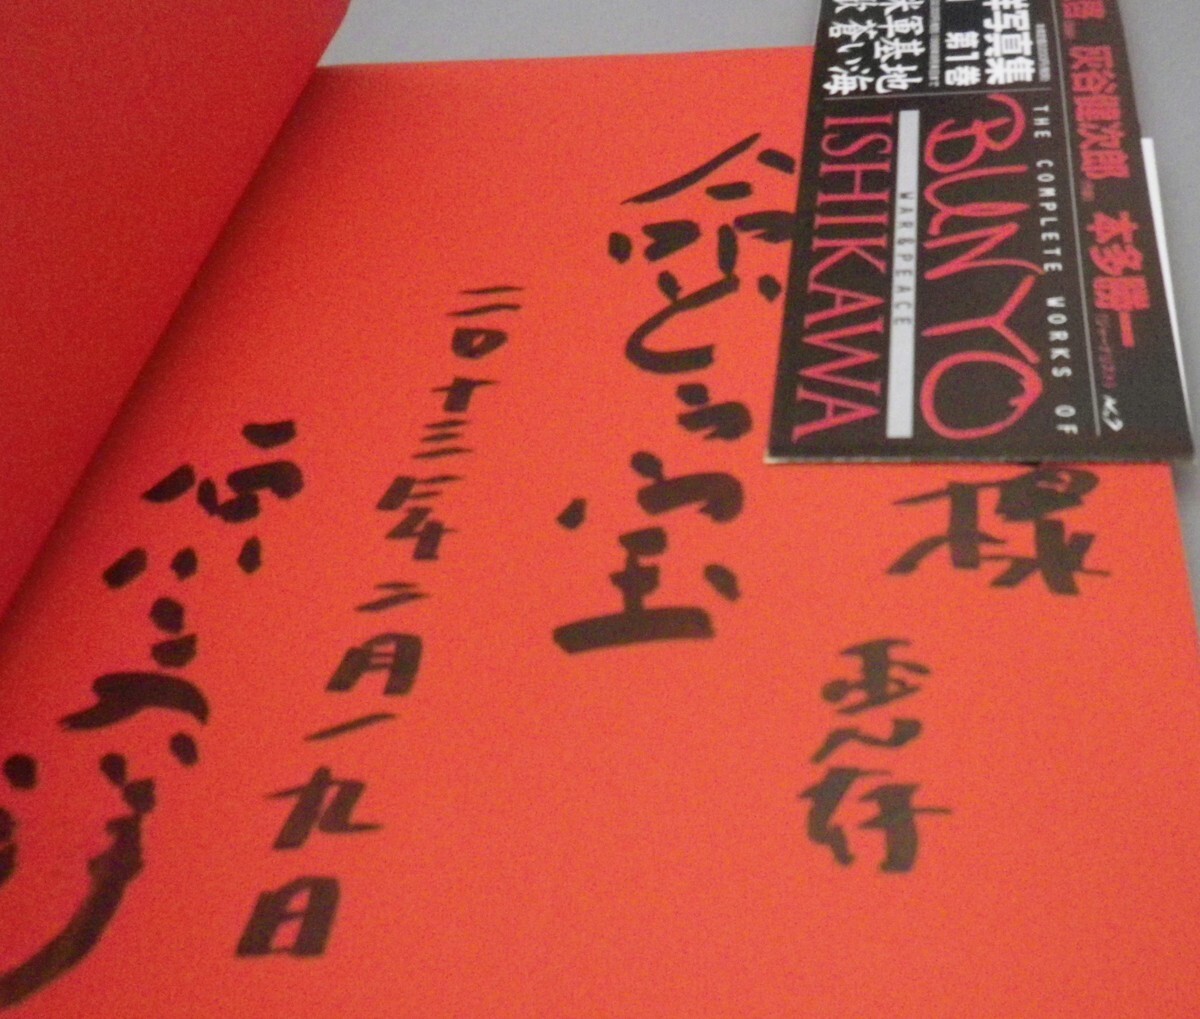 灰谷健次郎 本多勝一
THE COMPLETE WORKS OF
BUNYO
WAR & PEACE
ISHIKAWA
写真集
第1巻
軍基地
蒼い海
様 恵存
命どぅ宝
二〇十三年二月一九日